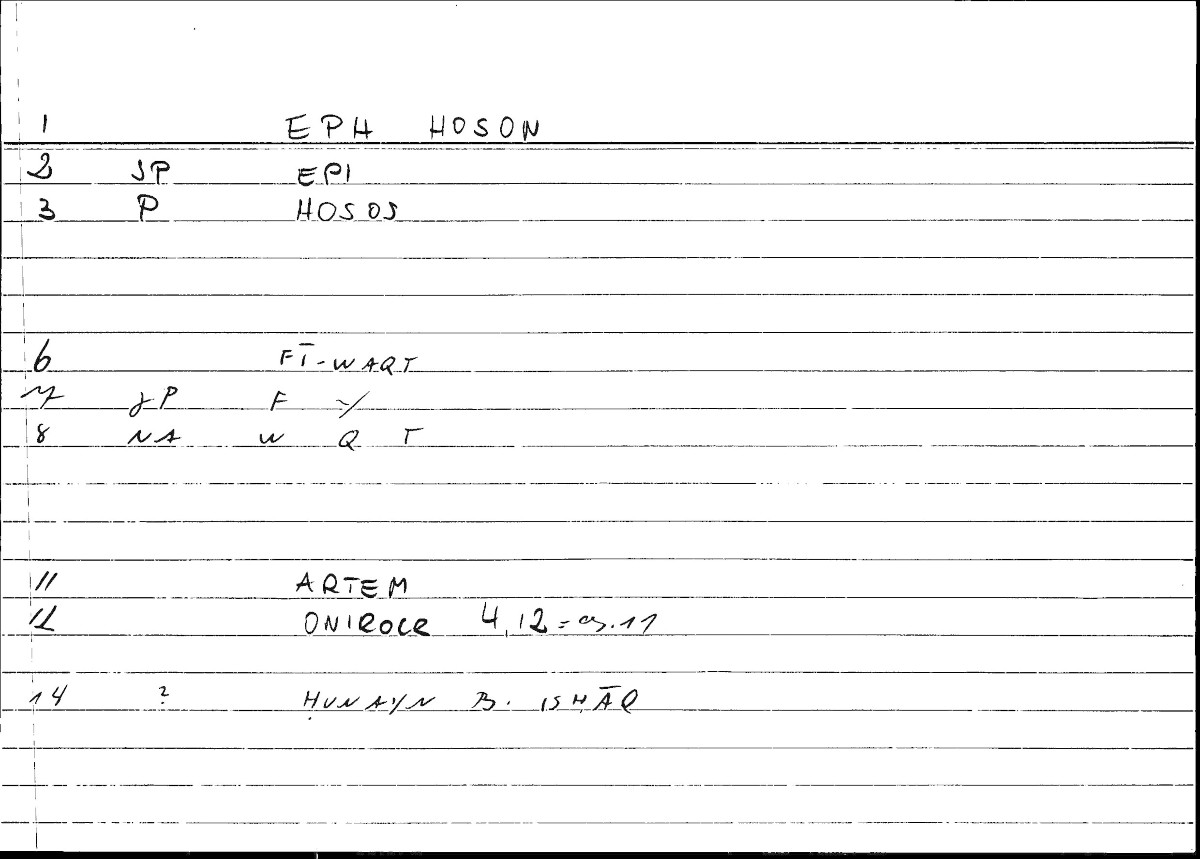 1 EPH HOSON
2 JP EPI
3 P HOSOS
6 FĪ-WAQT
7 JP F Y
8 NA W Q T
11 ARTEM
12 ONIROCR 4,12 = 11
14 ? ḤUNAYN B. ISḤĀQ